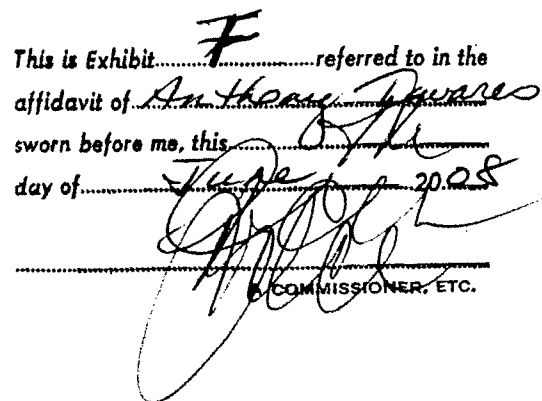 This is Exhibit F referred to in the
affidavit of Anthony Tavares
sworn before me, this
day of June 2008
A COMMISSIONER, ETC.